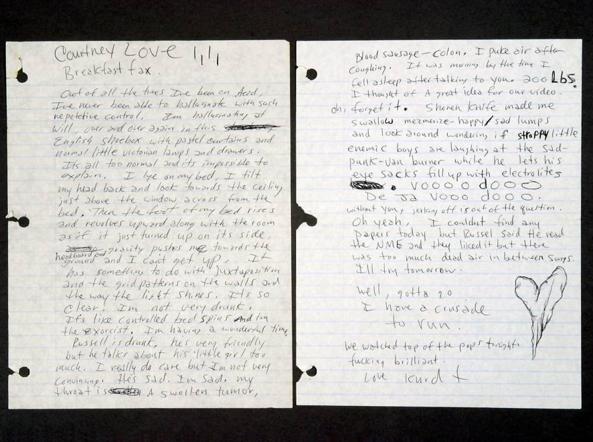 Courtney Love
Breakfast fax.
Out of all the times I've been on Acid,
I've never been able to hallucinate with such
repetitive control. I'm hallucinating at
Will, over and over again in this
English shoebox with pastel curtains and
normal little victorian lamps and drawers.
It's all too normal and its impossible to
explain. I lye on my bed, I tilt
my head back and look towards the ceiling
just above the window across from the
bed. Then the foot of my bed rises
and revolves upward along with the room
as if it just turned up on its side.
gravity pushes me towards the
headboard ground and I can't get up. It
has something to do with juxtaposition
and the grid patterns on the walls and
the way the light shines. It's so
clear, I'm not very drunk.
It's like controlled bed spins and
the exorcist. I'm having a wonderful time
Russell is drunk. he's very friendly
but he talks about his little girl too
much. I really do care but I'm not very
Convincing. He's sad. I'm sad. my
throat is A swollen tumor,
Blood sausage – colon. I puke air after
coughing. It was morning by the time I
fell asleep after talking to you. 200 Lbs.
I thought of A great idea for our video.
oh, forget it. Sheren knife made me
swallow mesmerize-happy/sad lumps
and look around wondering if little
enemic boys are laughing at the sad-
punk-van burner while he lets his
eye sacks fill up with electrolites
. VOOOO dOOO
De Ja VOOO dOOO.
without you, jerking off is out of the question.
Oh yeah. I couldnt find any
Papers today but Russel said He read
the NME and they liked it but there
was too much dead air in between songs.
I'll try tomorrow.
Well, gotta go
I have a crusade
to run.
We watched top of the pops tonight.
fucking brilliant.
Love Kurdt